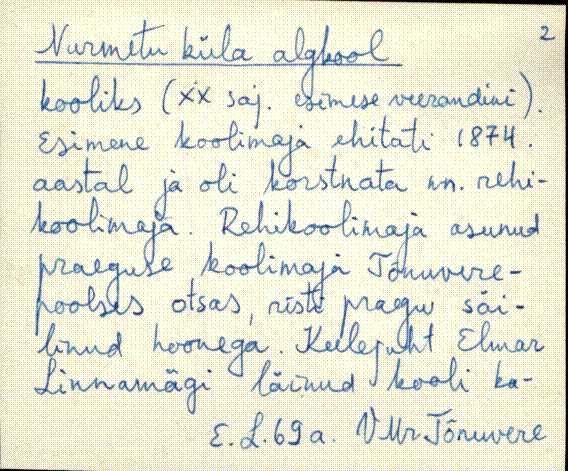 2
Nurmetu küla algkool
kooliks (XX saj. esimese veerandini).
Esimene koolimaja ehitati 1874.
aastal ja oli korstnata nn. rehi-
koolimaja. Rehikoolimaja asunud
praeguse koolimaja Tõnuvere-
poolses otsas, risti pragu säi-
linud hoonega. Keelejuht Elmar
Linnamägi läinud kooli ka-
E. L. 69 a. VMr Tõnuvere